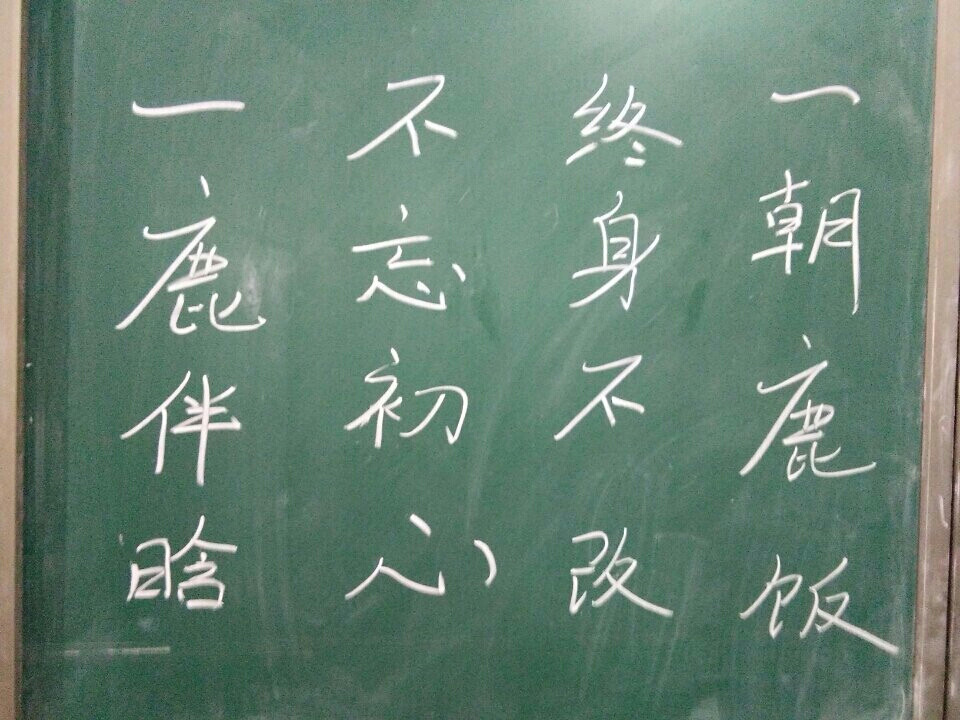 一朝鹿饭
终身不改
不忘初心
一鹿伴晗